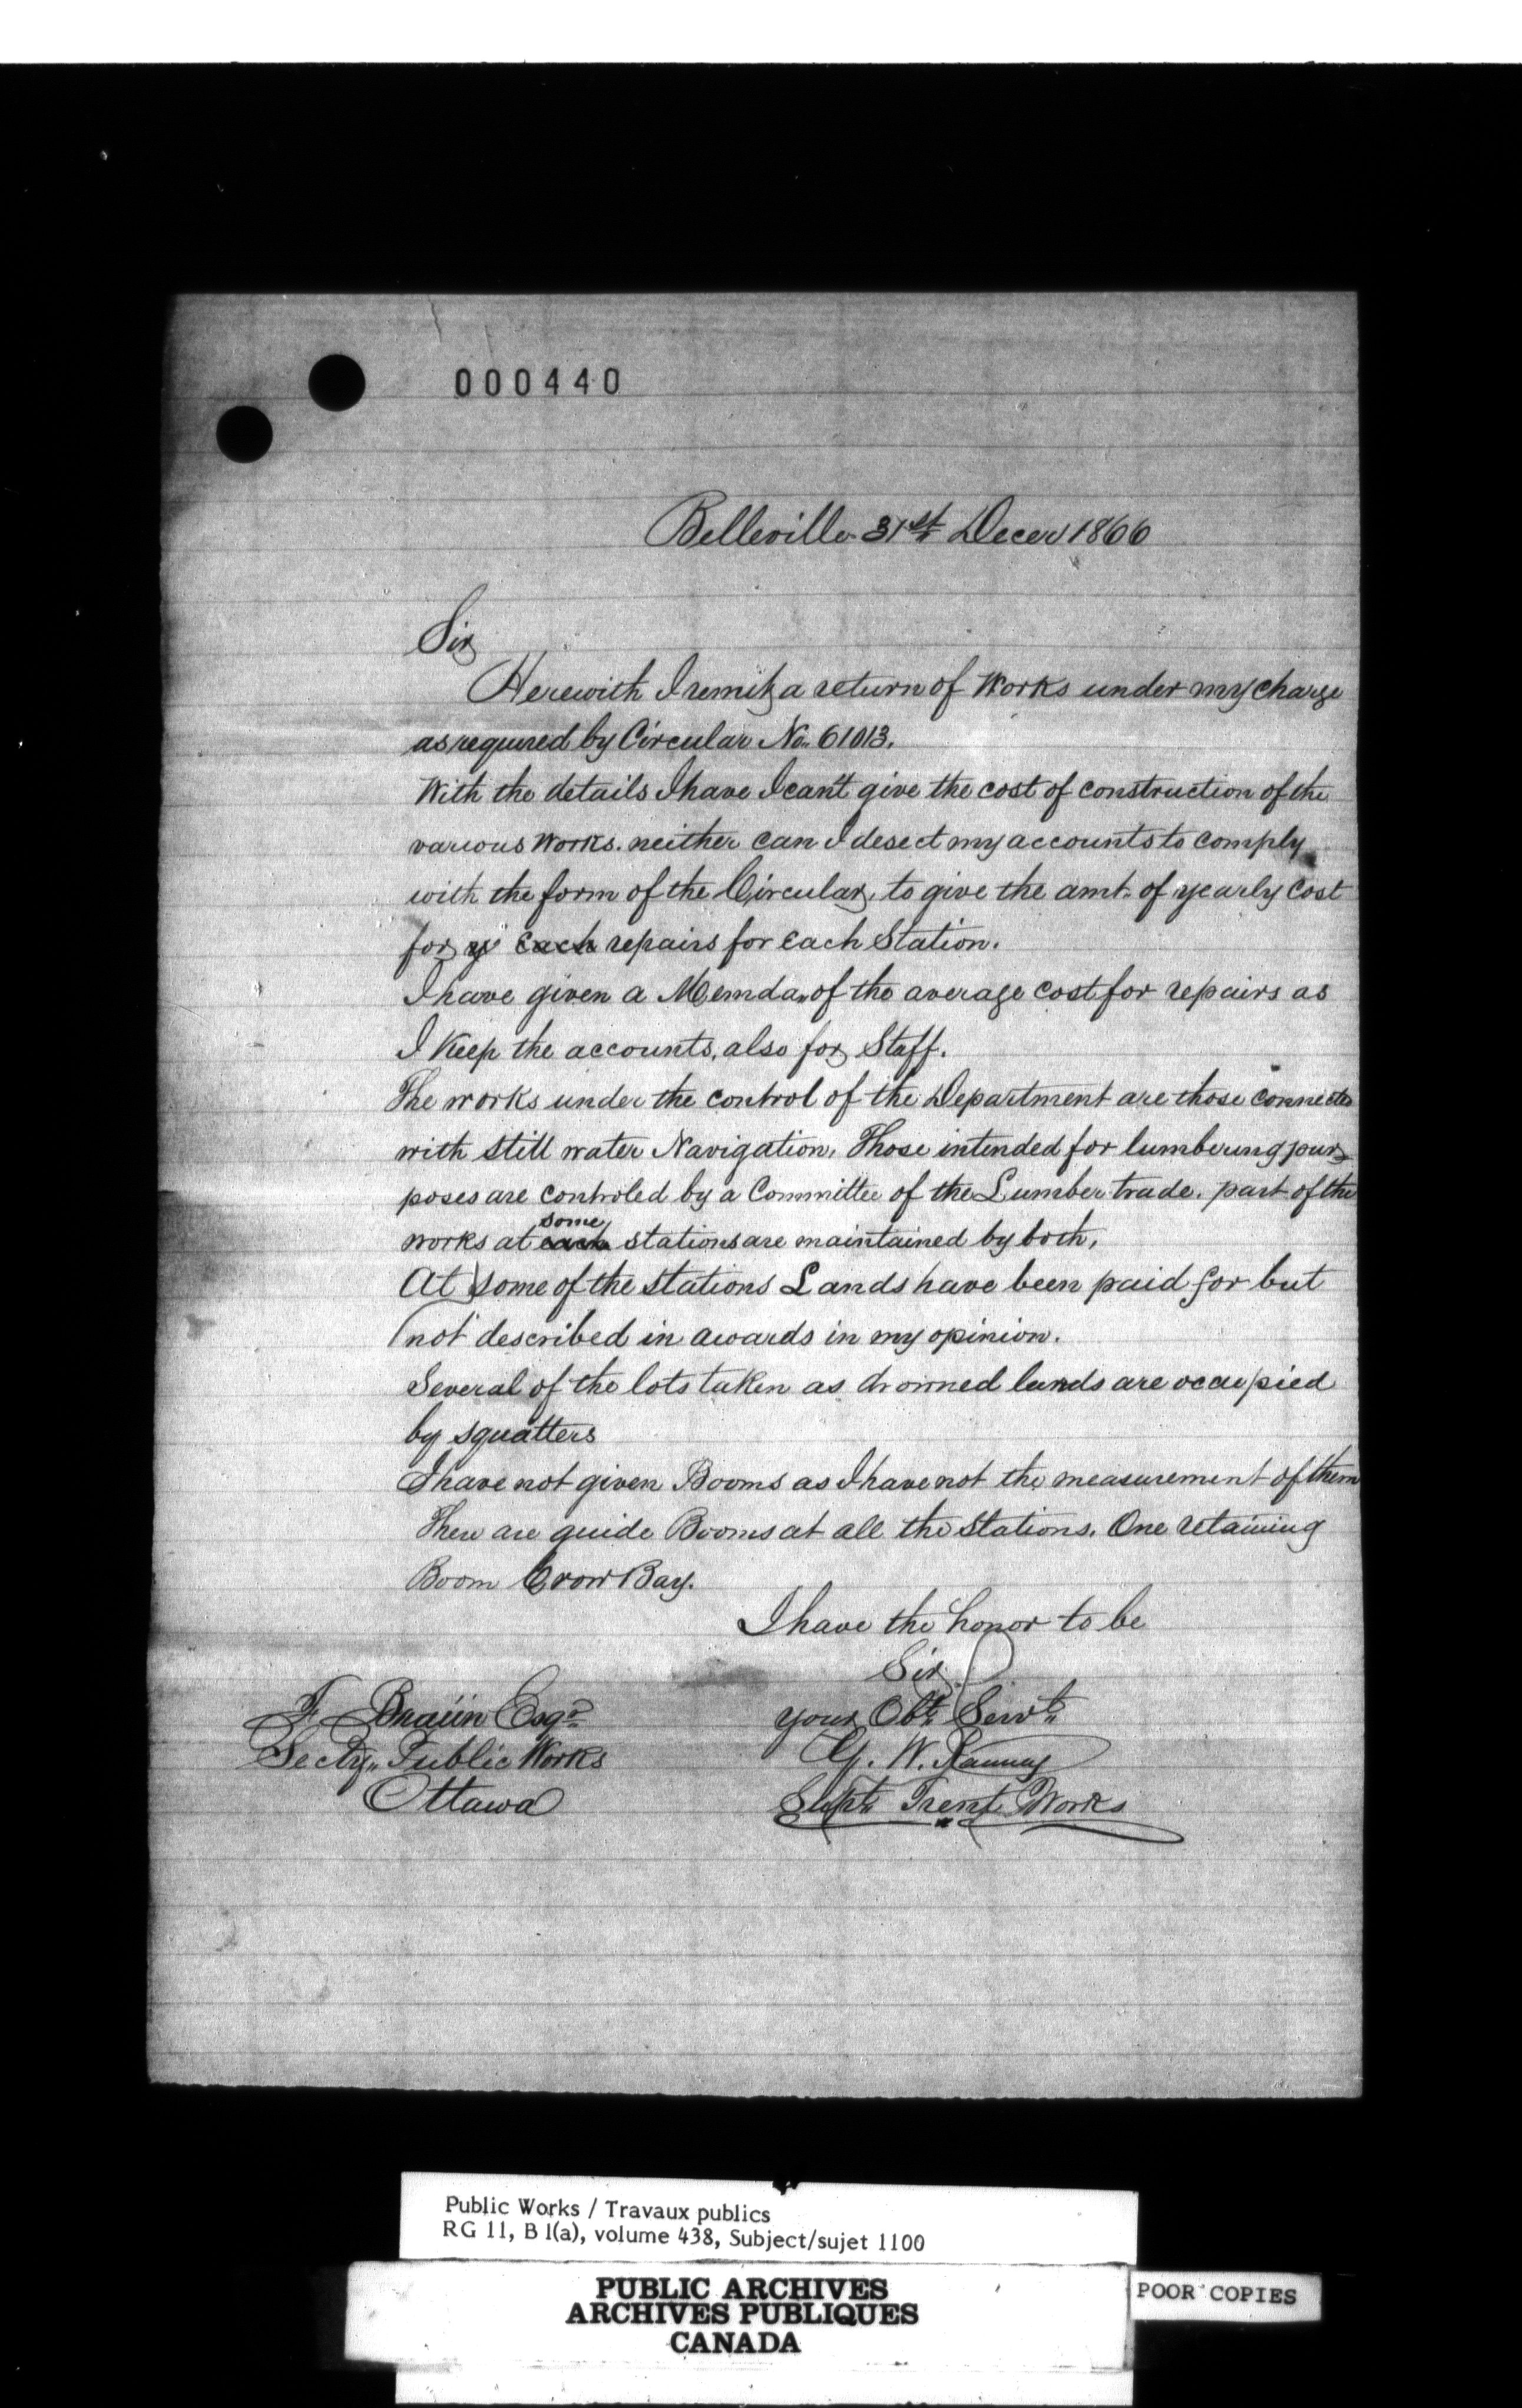 000440
Belleville 31st Decer 1866
Sir
Herewith I remit a return of Works under my charge
as requred by Circular No. 61013.
With the details I have I can't give the cost of construction of the
various Works. neither can I desect my accounts to comply
with the form of the Circular, to give the amt. of yearly cost
for y each repairs for each Station.
I have given a Memda. of the average cost for repairs as
I Keep the accounts, also for Staff.
The works under the control of the Department are those connected
with still water Navigation. Those intended for lumbering pur-
poses are controled by a Committee of the Lumber trade. part of the
some
works at each stations are maintained by both,
At some of the stations Lands have been paid for but
not described in awards in my opinion.
Several of the lots taken as drowned lands are occupied
by squatters
I have not given Booms as I have not the measurement of them
There are guide Booms at all the Stations. One retaining
Boom Crow Bay.
I have the honor to be
Sir
your Obt. Servt.
G. W. Ranney
Supt. Trent Works
F. Braün Esqr.
Secty. Public Works
Ottawa
Public Works / Travaux publics
RG 11, B 1(a), volume 438, Subject/sujet 1100
PUBLIC ARCHIVES
ARCHIVES PUBLIQUES
CANADA
POOR COPIES